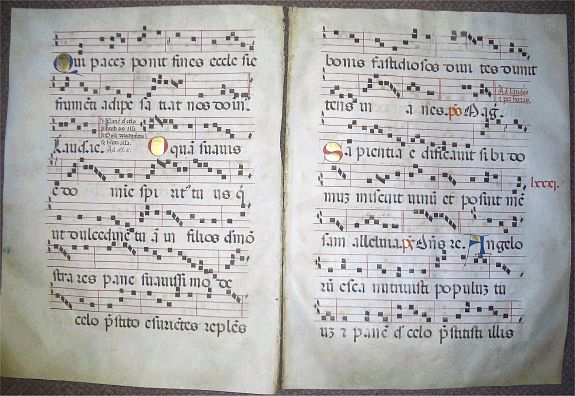 Qui pacez ponit fines eccle sie
frumēti adipe sa tiat nos dom̄.
Laud. ie. O quā suavis
ē do mie spi rit⁹ tu us q̄
ut dulcedinē tu ā in filios dmō
stra res pane suavissi mo de
celo p̄stito esurietes reples
bonis fastidiosos divi tes dimit
Ad laudes
tens in a nes. p̄s Mag̃.
Sa pientia e dificavit si bi do
lxxxj.
muz miscuit vinū et posuit mē
sam alleluia. p̄s Dñs re. Angelo
rū esca nutrivisti populuz tu
uz ⁊ panē d̄ celo p̄stitisti illis